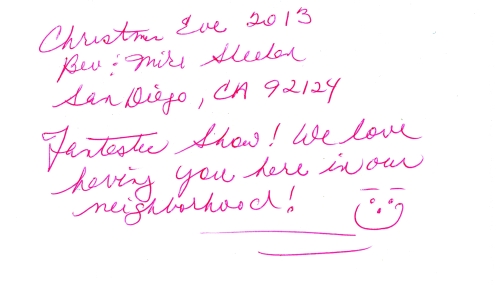 Christmas Eve 2013
Bev & Mike
San Diego, CA 92124
Fantastic Show! We love
having you here in our
neighborhood!